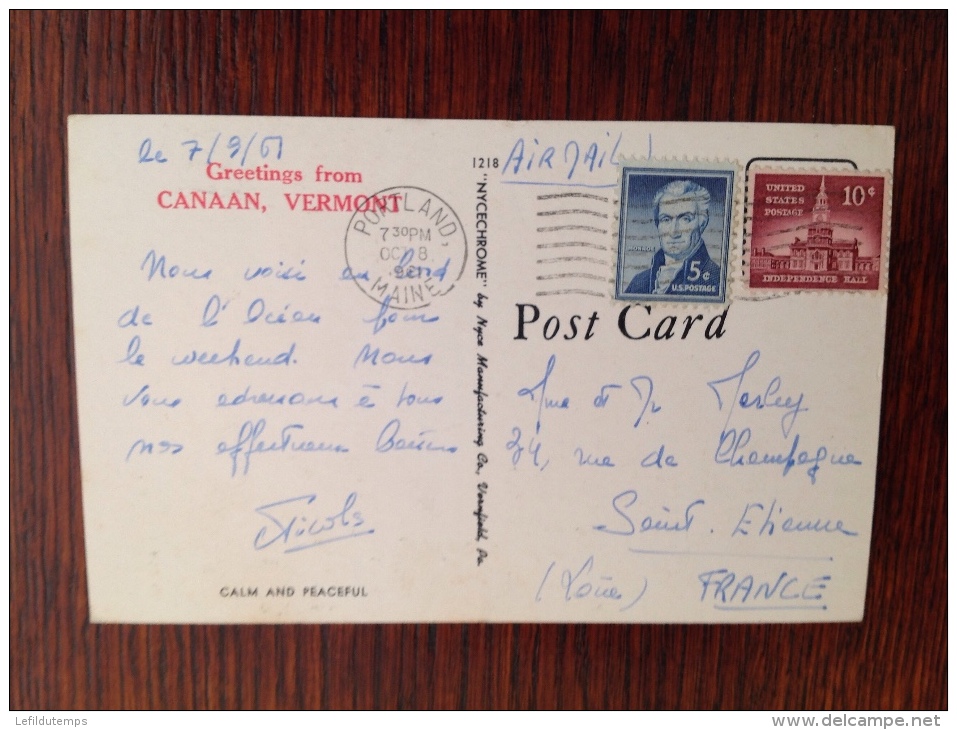 le 7/9/61
Greetings from
CANAAN, VERMONT
Nous voici au bord
de l'Océan pour
le weekend. Nous
vous adressons à tous
nos affectueux baisers
Nicole
CALM AND PEACEFUL
1218
"NYCECHROME" by Nyce Manufacturing Co., Vernfield, Pa.
PORTLAND,
7 30 PM
OCT 8
MAINE
AIR MAIL
MONROE
5¢
U.S. POSTAGE
UNITED
STATES
POSTAGE
10¢
INDEPENDENCE HALL
Post Card
Mme et Mr
34, rue de Champagne
Saint. Etienne
(Loire) FRANCE
Lefildutemps
www.delcampe.net